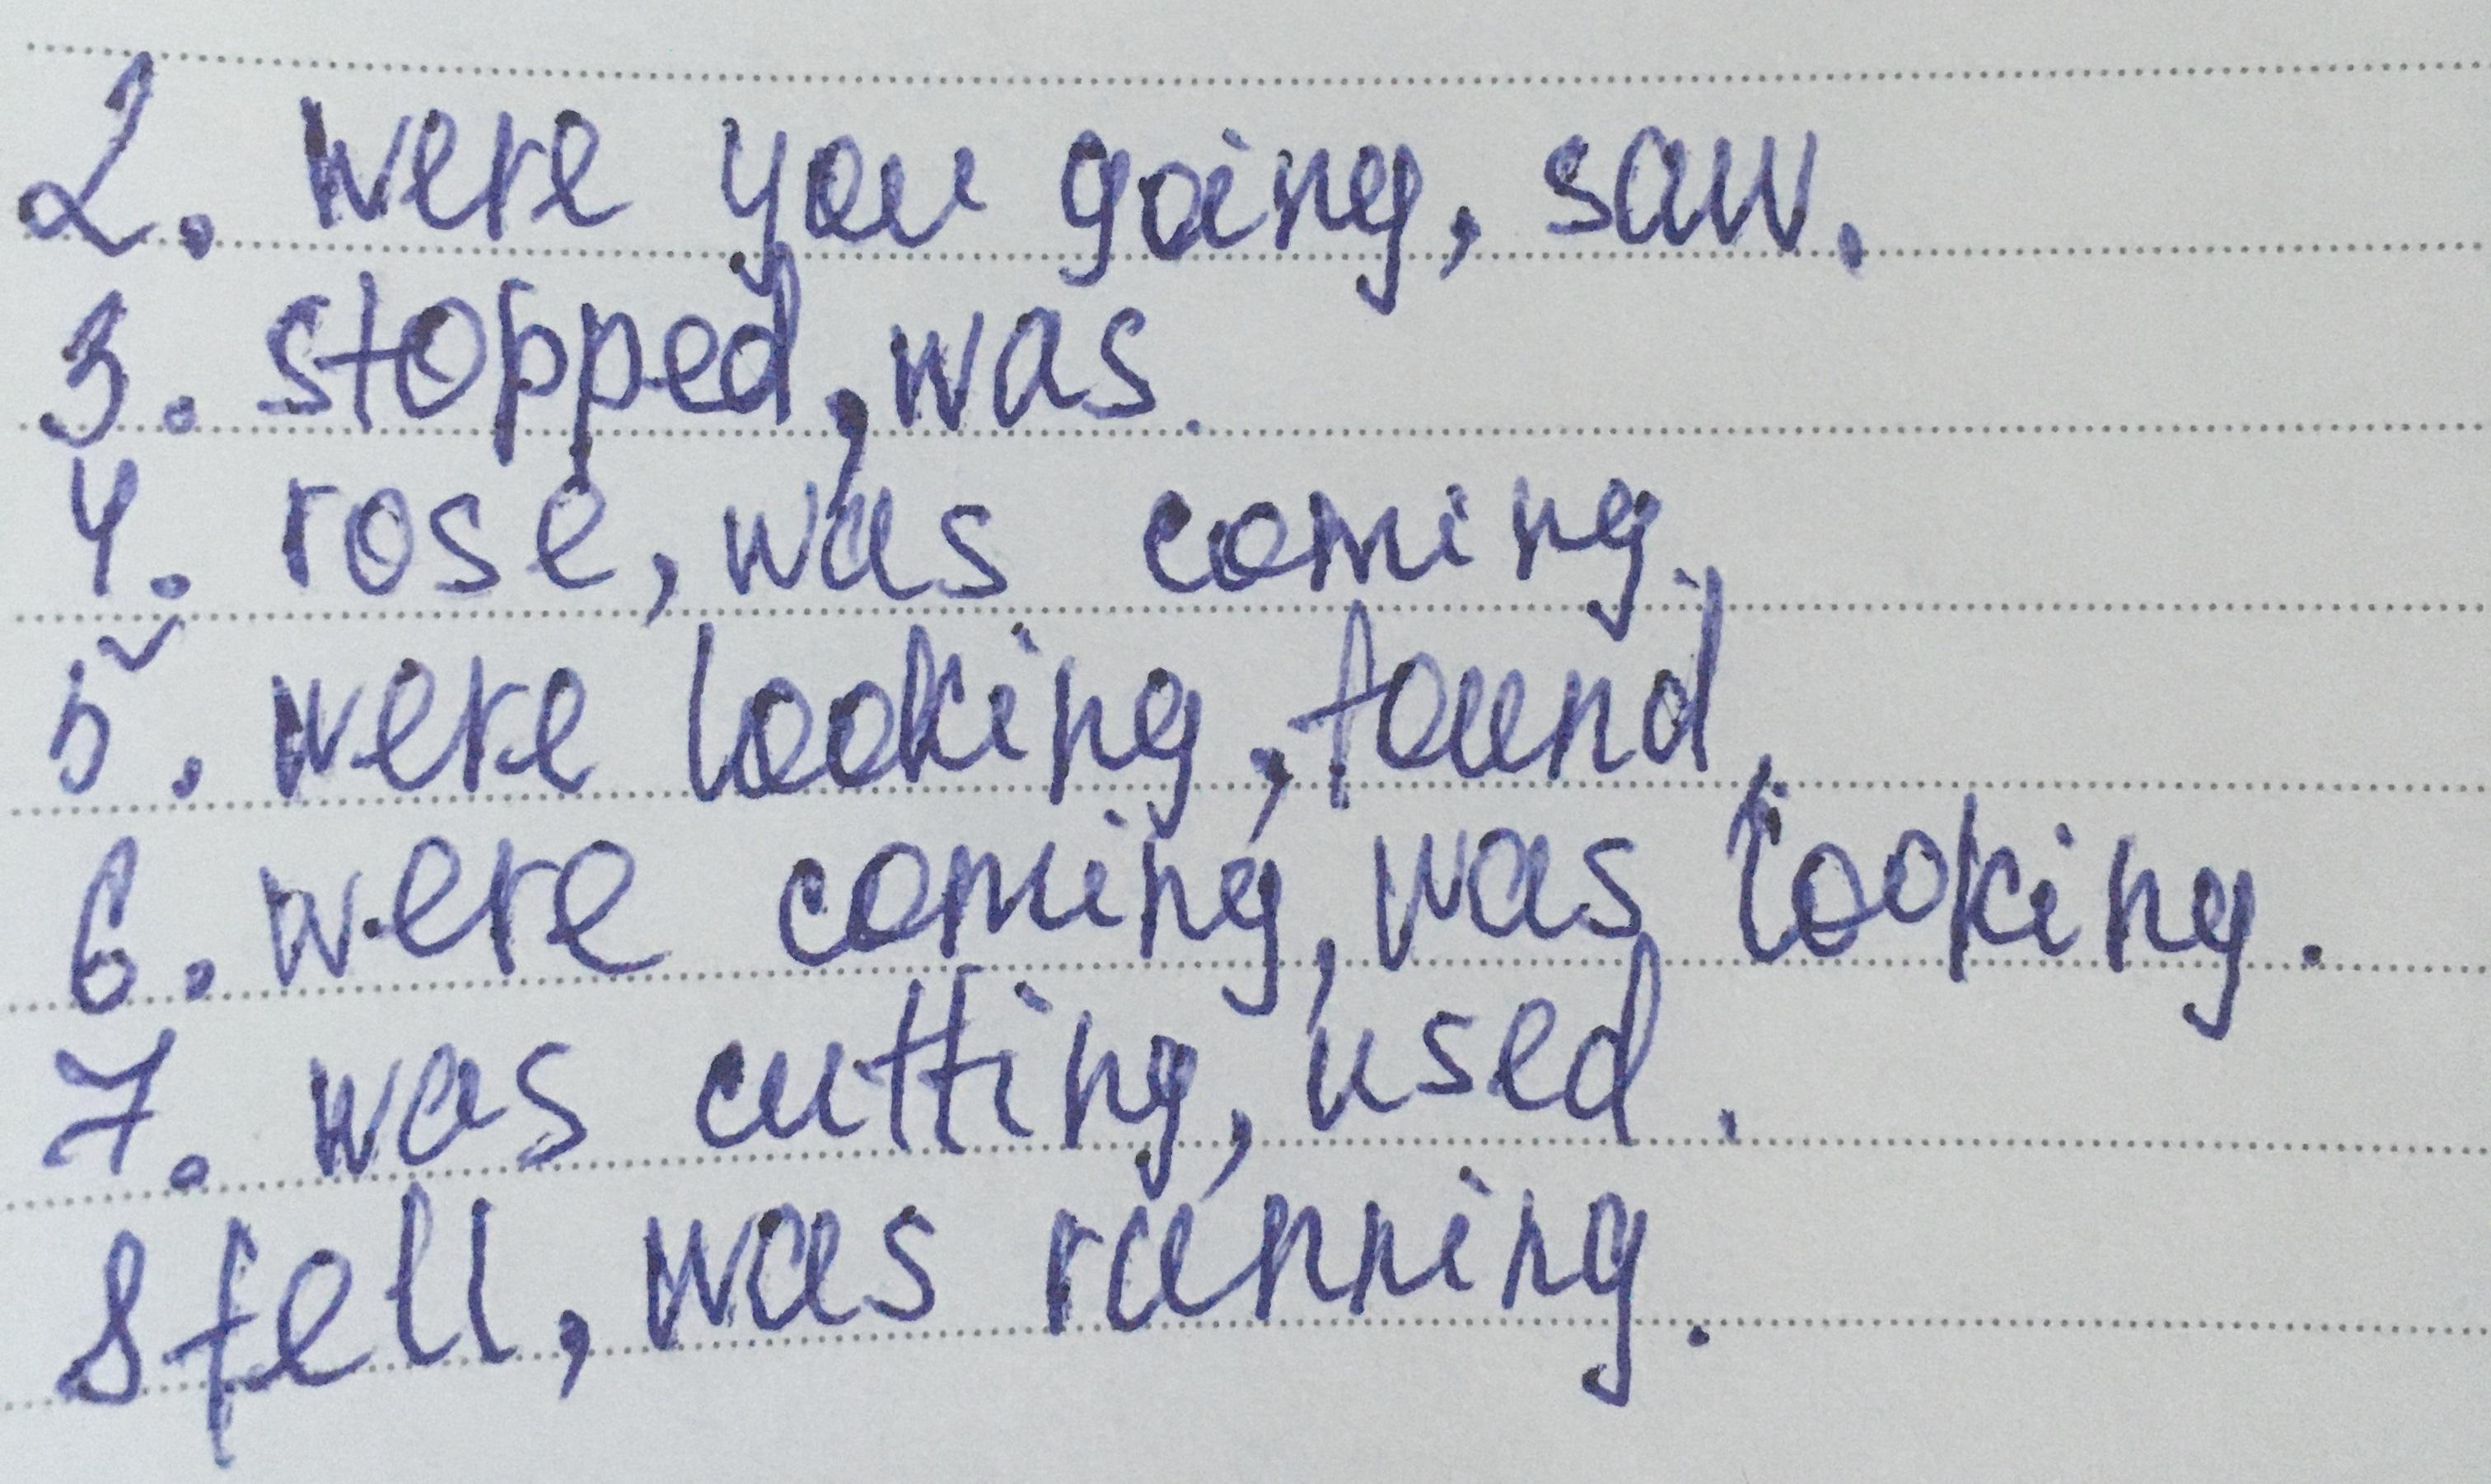 2. were you going, saw.
3. stopped, was.
4. rose, was coming.
5. were looking, found.
6. were coming, was looking.
7. was cutting, used.
8 fell, was running.